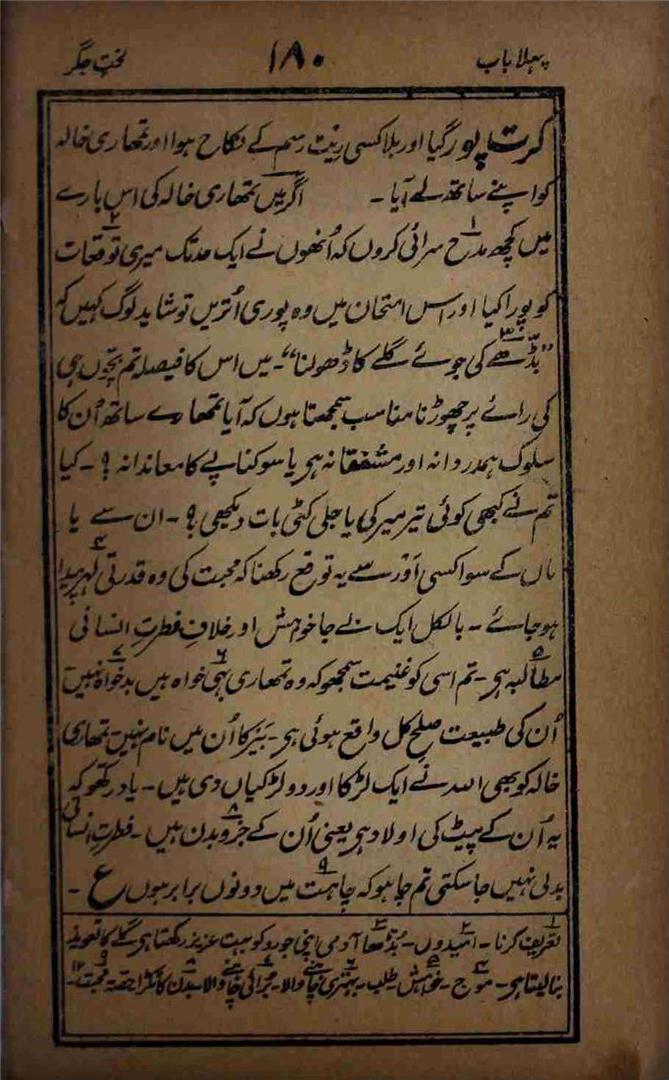 پہلا باب ۱۸۰ لختِ جگر
کرت پور گیا اور بلا کسی ریت رسم کے نکاح ہوا اور تمھاری خالہ
کو اپنے ساتھ لے آیا ۔ اگر میں تمھاری خالہ کی اس بارے
میں کچھ مدح ۱ سرائی کروں کہ اُنھوں نے ایک حد تک میری توقعات ۲
کو پورا کیا اور اس امتحان میں وہ پوری اُتریں تو شاید لوگ کہیں کہ
”بڈّھے ۳ کی جوئے گلے کا ڈھولنا“۔ میں اس کا فیصلہ تم بچّوں ہی
کی رائے پر چھوڑنا مناسب سمجھتا ہوں کہ آیا تمھارے ساتھ اُن کا
سلوک ہمدردانہ اور مشفقانہ ہی یا سوکناپے کا معاندانہ ؟ ۔ کیا
تم نے کبھی کوئی تیر میر کی یا جلی کٹی بات دیکھی ؟ ۔ ان سے یا
ماں کے سوا کسی اَوْر سے یہ توقع رکھنا کہ محبت کی وہ قدرتی لہر ۴ پیدا
ہو جائے ۔ بالکل ایک بے جا خواہش اور خلافِ فطرتِ انسانی
مطالبہ ۵ ہی ۔ تم اسی کو غنیمت سمجھو کہ وہ تمھاری بہی خواہ ۶ ہیں بدخواہ ۷ نہیں
اُن کی طبیعت صلحِ کل واقع ہوئی ہی ۔ بَیر کا اُن میں نام نہیں ۔ تمھاری
خالہ کو بھی اللہ نے ایک لڑکا اور دو لڑکیاں دی ہیں ۔ یاد رکھو کہ
یہ اُن کے پیٹ کی اولاد ہی یعنی اُن کے جزوِ بدن ۸ ہیں ۔ فطرتِ انسانی
بدلی نہیں جا سکتی تم چاہو کہ چاہت ۹ میں دونوں برابر ہوں ع ۔
۱ تعریف کرنا ۔ ۲ امیدوں ۔ ۳ بُڈّھا آدمی اپنی جورو کو بہت عزیز رکھتا ہی گلے کا تعویذ
بنا لیتا ہی ۔ ۴ موج ۔ ۵ خواہش طلب ۔ ۶ بہتری چاہنے والا ۔ ۷ بُرائی چاہنے والا ۔ ۸ بدن کا ٹکڑا حصّہ ۹ محبت ۱۲ ۔